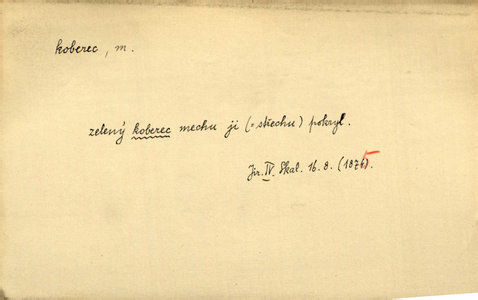 koberec, m.
zelený koberec mechu ji (= střechu) pokryl.
Jir. IV. Skal. 16. 8. (1875).